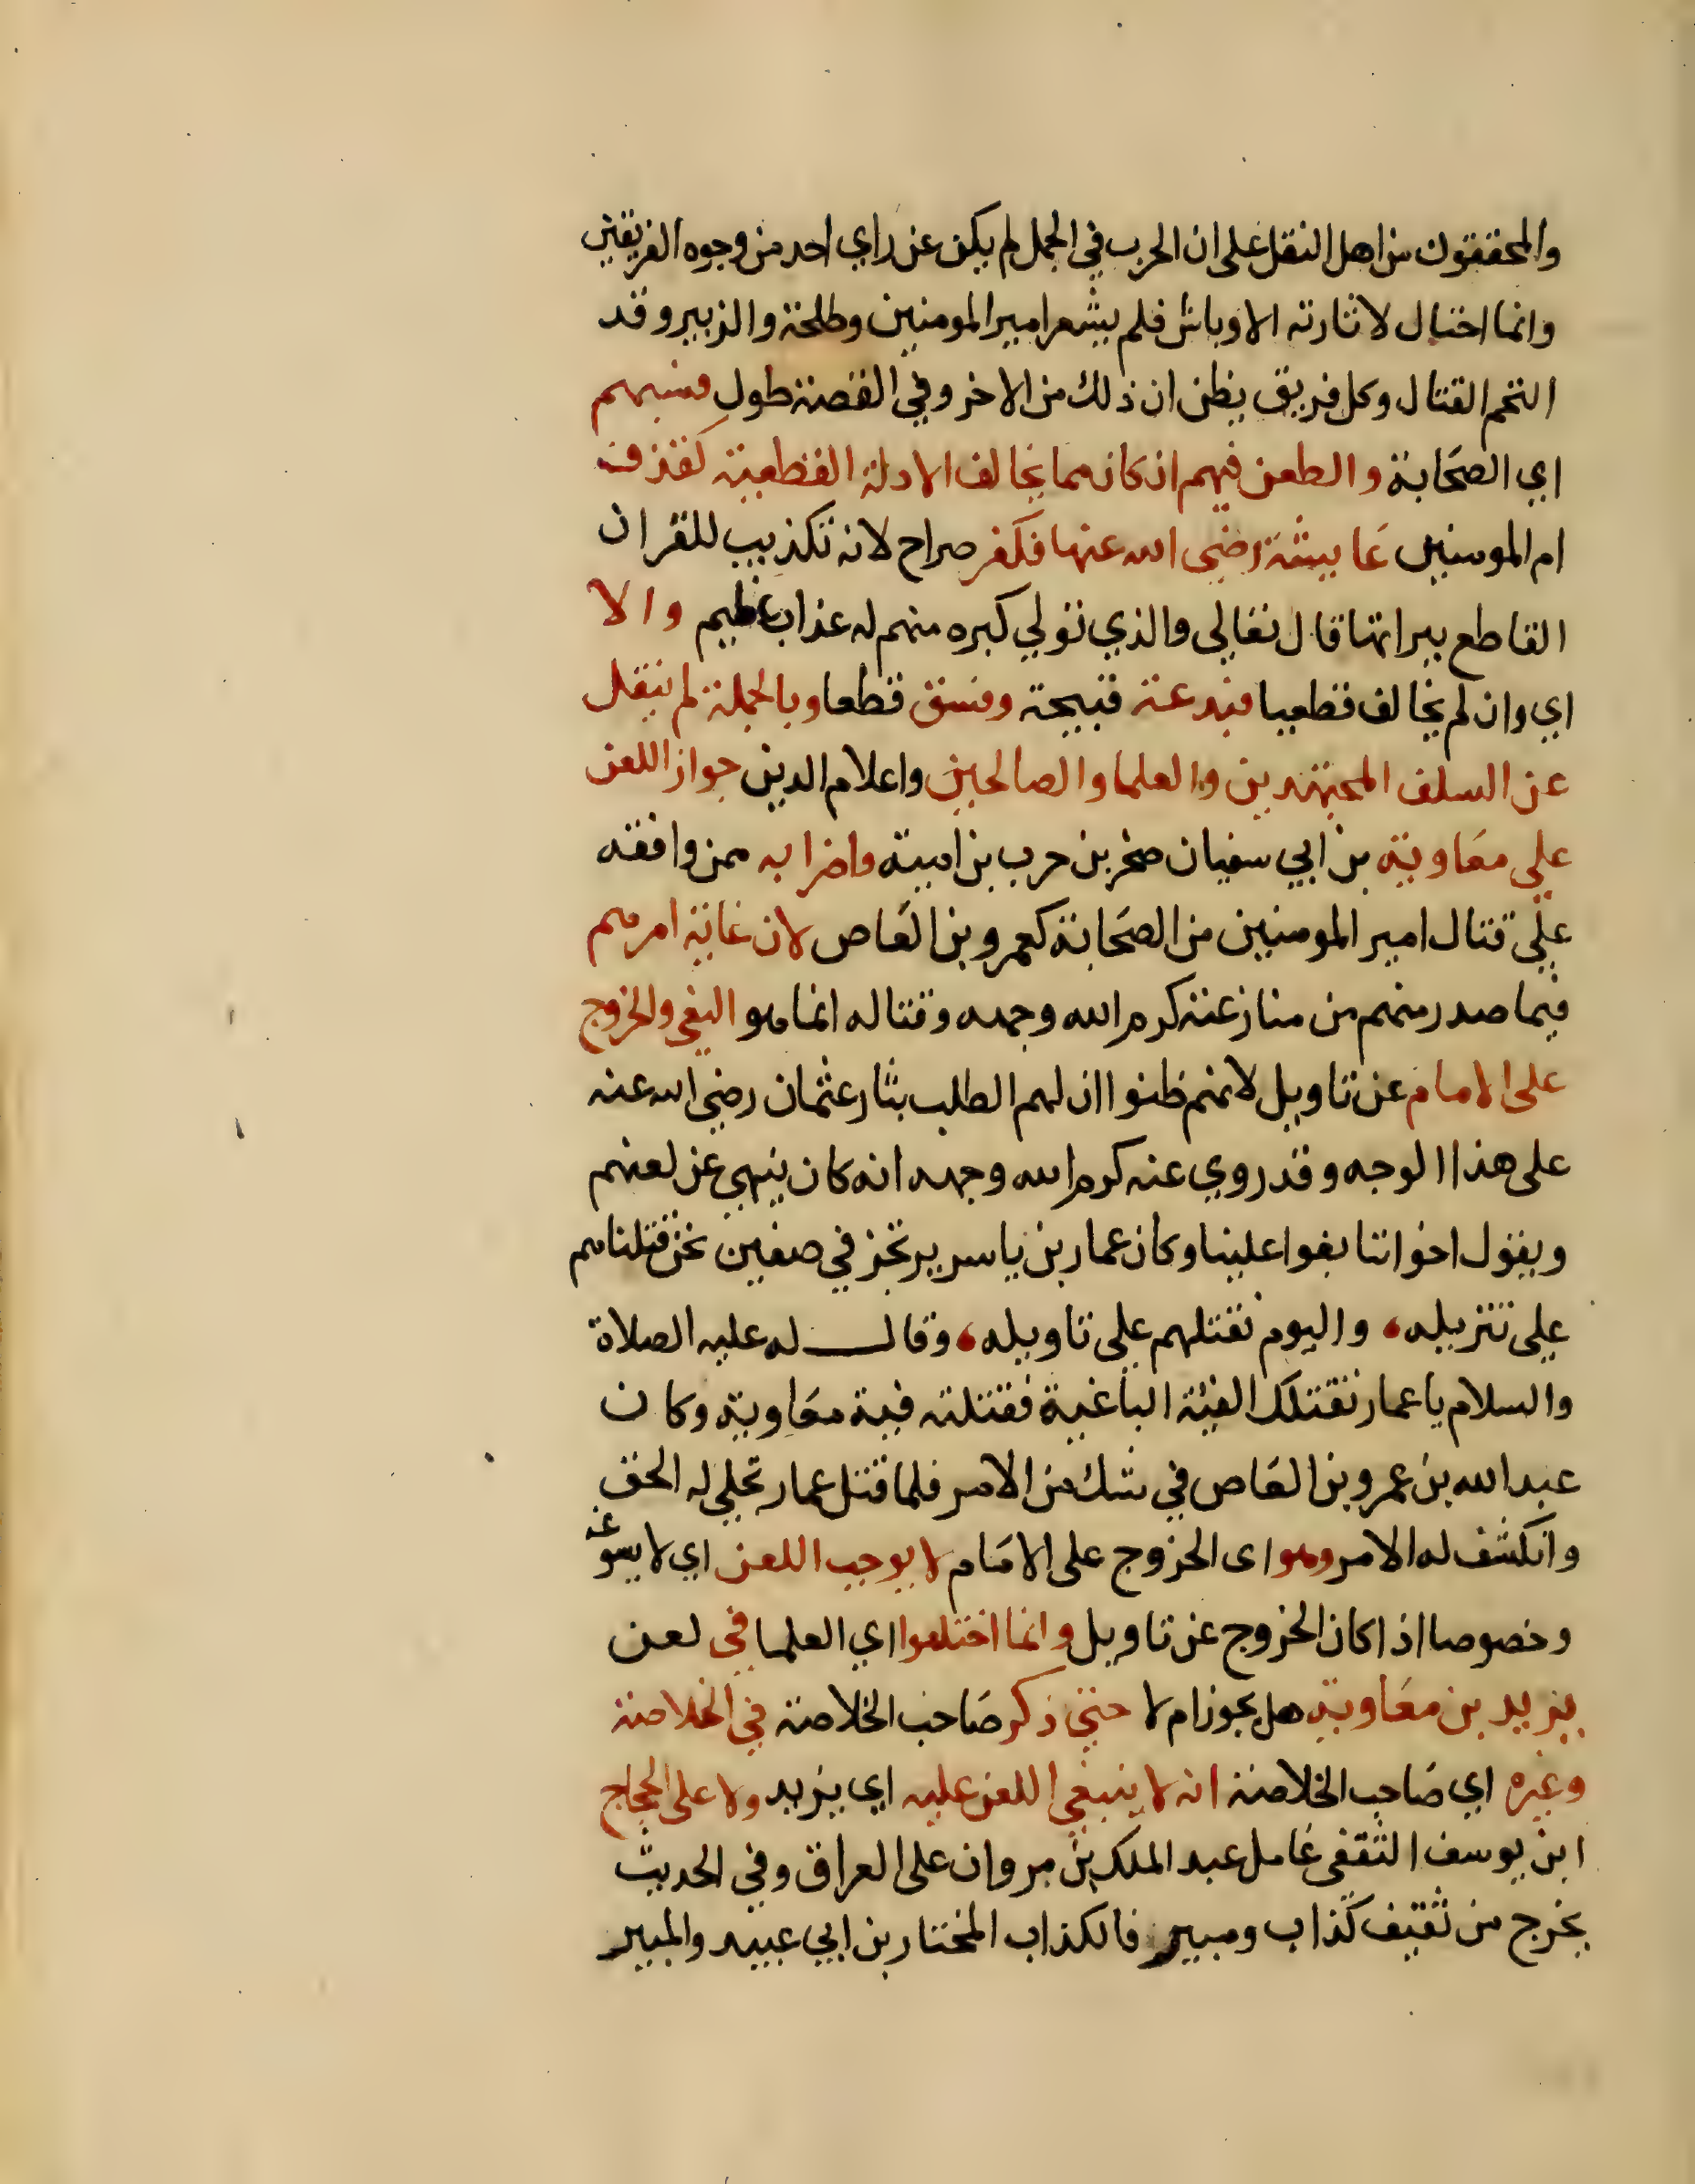 والمحققون من اهل النقل على ان الحرب في الجمل لم يكن عن راي احد من وجوه الفريقين
وانما اختيال لاثارته الاوباش فلم يشعر امير المومنين وطلحة والزبير وقد
التحم القتال وكل فريق يظن ان ذلك من الاخر وفي القصة طول فسبهم
اي الصحابة والطعن فيهم ان كان مما يخالف الادلة القطعية كقذف
ام المومنين عايشة رضي الله عنها فكفر صراح لانه تكذيب للقران
القاطع ببراتها قال تعالى والذي تولي كبره منهم له عذاب عظيم والا
اي وان لم يخالف قطعيا فبدعة قبيحة وفسق قطعا وبالجملة لم ينقل
عن السلف المجتهدين والعلما والصالحين واعلام الدين جواز اللعن
على معاوية بن ابي سفيان صخر بن حرب بن امية واضرابه ممن وافقه
على قتال امير المومنين من الصحابة كعمرو بن العاص لان غاية امرهم
فيما صدر منهم من منازعته كرم الله وجهه وقتاله انما هو البغي والخروج
على الامام عن تاويل لانهم ظنوا ان لهم الطلب بثار عثمان رضي الله عنه
على هذا الوجه وقد روي عنه كرم الله وجهه انه كان ينهى عن لعنهم
ويقول اخواننا بغوا علينا وكان عمار بن ياسر يرتجز في صفين نحن قتلناهم
على تنزيله، واليوم نقتلهم على تاويله، وقال له عليه الصلاة
والسلام يا عمار تقتلك الفئة الباغية فقتلته فية معاوية وكان
عبد الله بن عمرو بن العاص في شك من الامر فلما قتل عمار تجلى له الحق
وانكشف له الامر وهو اى الخروج على الامام لا يوجب اللعن اي لا يسوغه
وخصوصا اذا كان الخروج عن تاويل وانما اختلفوا اي العلما في لعن
يزيد بن معاوية هل يجوز ام لا حتي ذكر صاحب الخلاصة في الخلاصة
وغيره اي صاحب الخلاصة انه لا ينبغي اللعن عليه اي يزيد ولا على الحجاج
ابن يوسف الثقفي عامل عبد الملك بن مروان على العراق وفي الحديث
يخرج من ثقيف كذاب ومبير فالكذاب المختار بن ابي عبيد والمبير